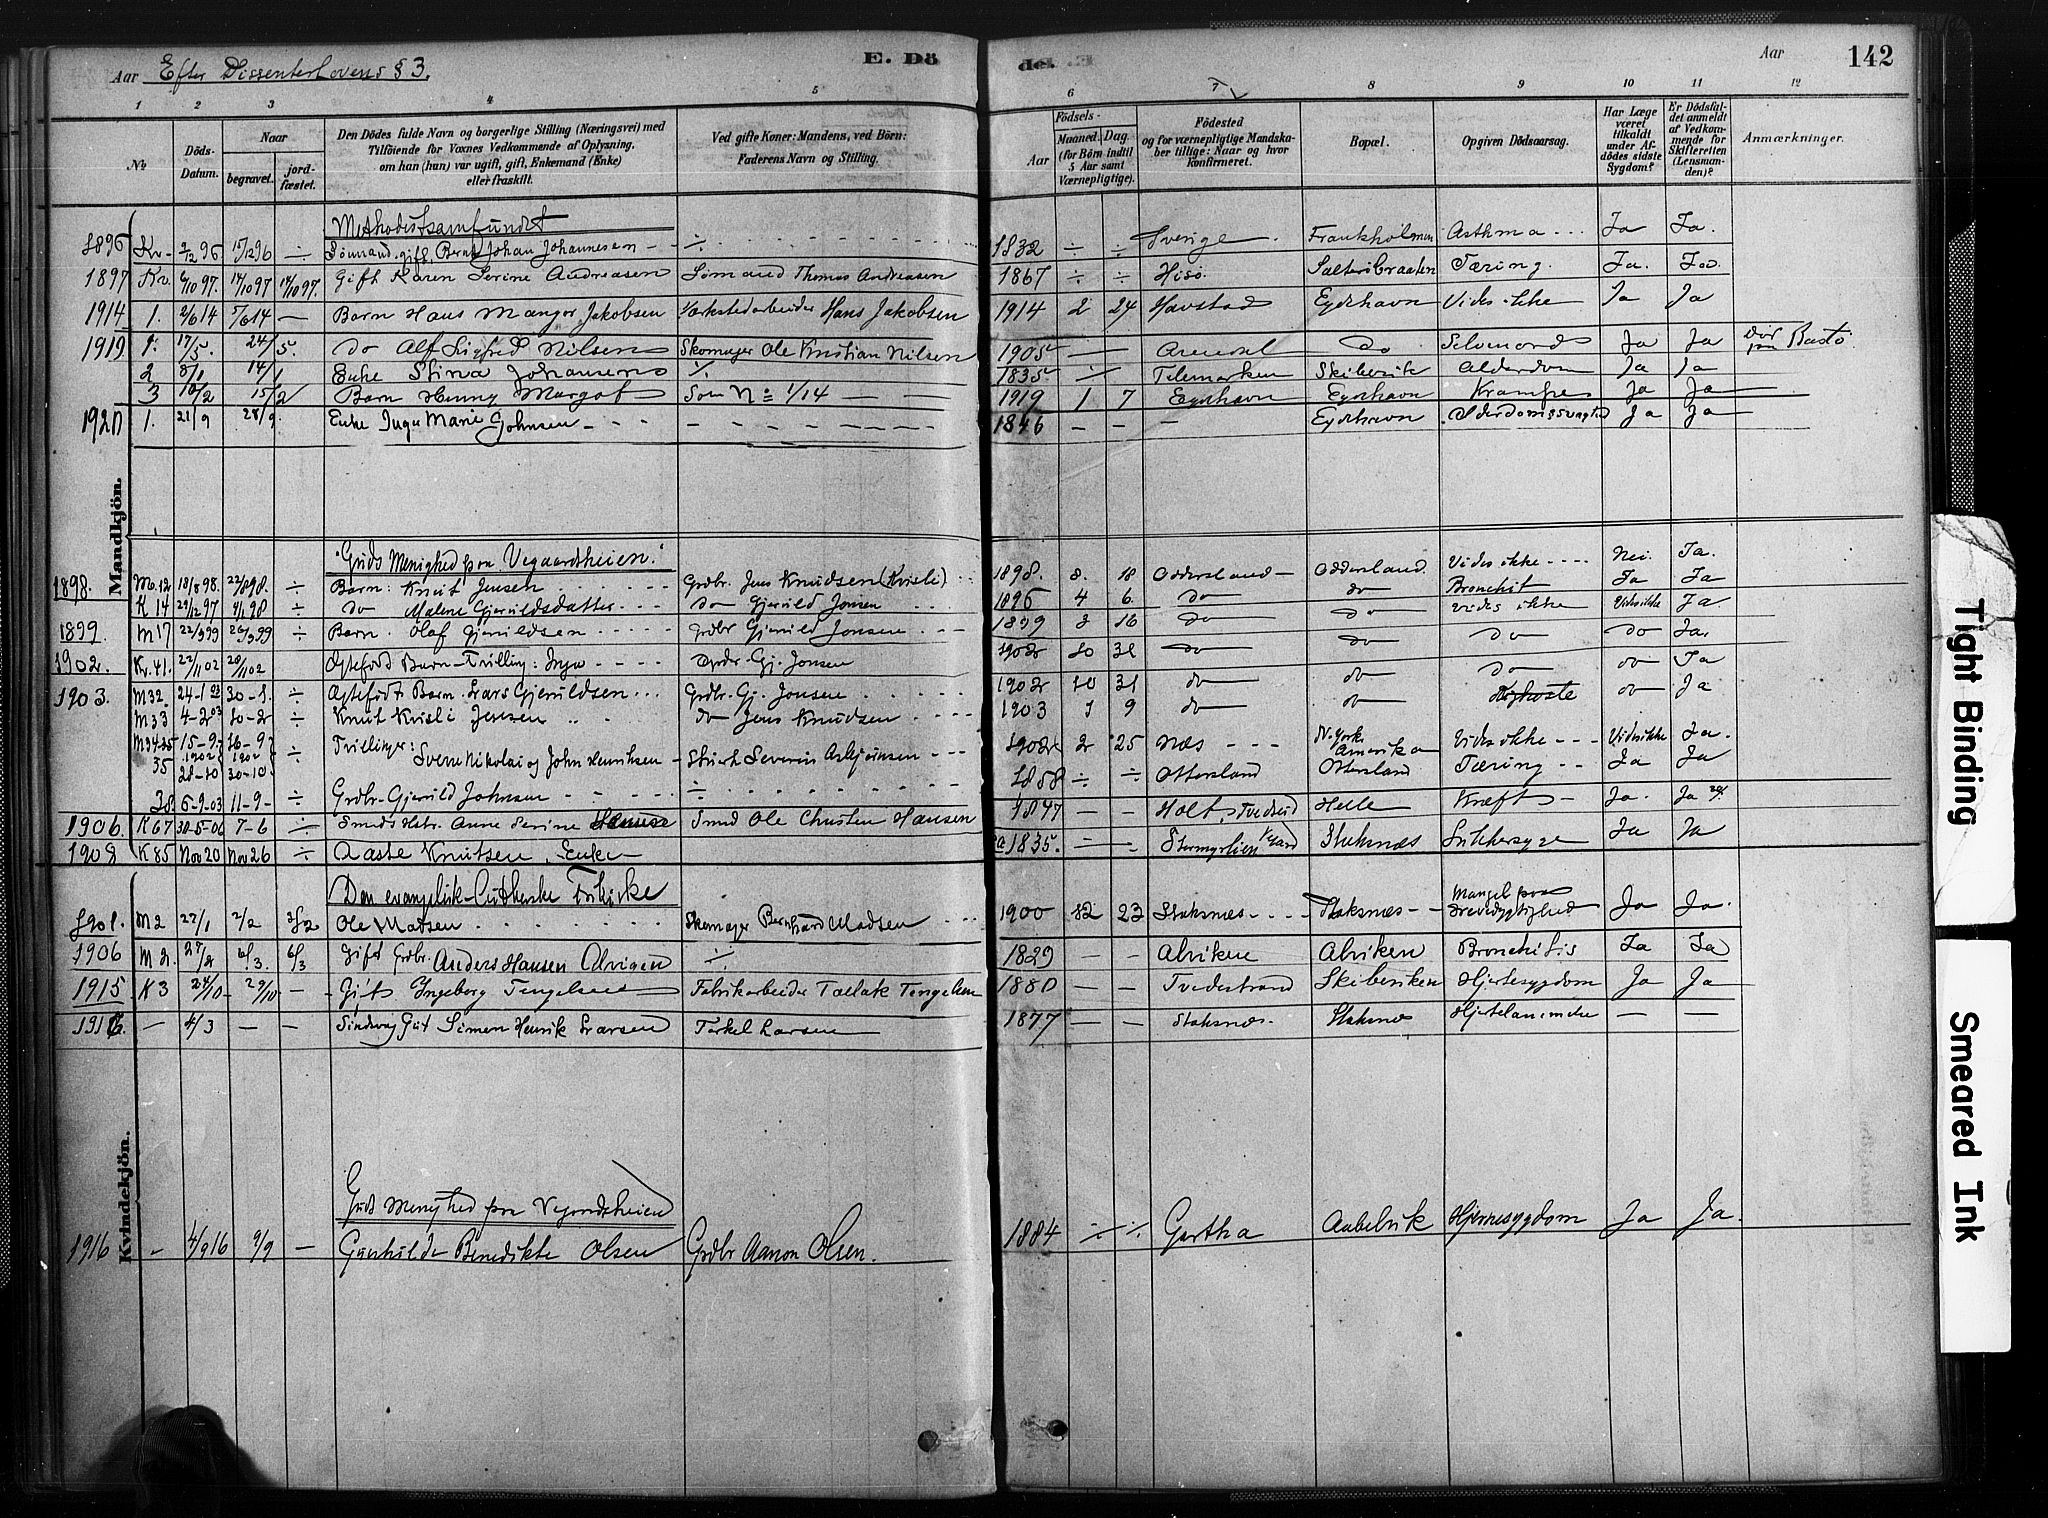 Aar Efter Dissenterlovens § 3. E. Dö de. Aar 142
1 2 3 4 5 6 7 8 9 10 11 12
No Döds-Datum. Naar begravet. jordfæstet. Den Dödes fulde Navn og borgerlige Stilling (Næringsvei) med Tilföiende for Voxnes Vedkommende af Oplysning, om han (hun) var ugift, gift, Enkemand (Enke) eller fraskilt. Ved gifte Koner: Mandens, ved Börn: Faderens Navn og Stilling. Aar Födsels- Maaned. Dag. (for Börn indtil 5 Aar samt Værnepligtige). Födested og for værnepligtige Mandskaber tillige: Naar og hvor konfirmeret. Bopæl. Opgiven Dödsaarsag. Har Læge været tilkaldt under Afdödes sidste Sygdom? Er Dödsfaldet anmeldt af Vedkommende for Skifteretten (Lensmanden)? Anmærkninger.
Methodistsamfundet
1896 Kv. 9/12 96 15/12 96 ÷ Sömand gift Bernt Johan Johannesen ÷ 1832 ÷ ÷ Sverige Frankholmen Asthma Ja Ja.
1897 Kv. 6/10 97. 14/10 97 14/10 97. Gift Karen Serine Andreasen Sömand Thomas Andreasen 1867 ÷ ÷ Hisö. Salteribraaten Tæring. Ja. Ja.
1914 1. 2/6 14 5/6 14 — Barn Hans Mangor Jakobsen Værkstedarbeider Hans Jakobsen 1914 2 24 Havstad Eydehavn Vides ikke Ja Ja
1919 1. 17/5. 24/5. Do Alf Sigfred Nilsen Skomager Ole Kristian Nilsen 1905 — Arendal Do Selvmord Ja Ja Dör paa Bastö
2 8/1 14/1 Enke Stina Johansen ÷ 1835 ÷ Telemarken Skiberik Alderdom Ja Ja
3 10/2 15/2 Barn Henny Margot Som No 1/14 — — 1919 1 7 Eydehavn Eydehavn Krampe Ja Ja
1920 1. 21/9 28/9. Enke Inga Marie Johnsen 1846 — — — Eydehavn Alderdomssvaghed Ja Ja
Mandkjön.
"Guds Menighed paa Vegaardsheien."
1898. M. 12 18/8 98. 22/8 98. ÷ Barn: Knut Jensen Grdbr. Jens Knudsen (Kvisle) 1898. 8. 18 Oddersland Oddersland. Vides ikke Nei. Ja.
K 14 29/12 97 4/1 98 ÷ do Malene Gjeruldsdatter do Gjeruld Jonsen 1896 4 6. do do Bronchit Ja Ja
1899 M 17 22/3 99 26/3 99 ÷ Barn. Olaf Gjeruldsen Grdbr Gjeruld Jonsen 1899 3 16 do do Vides ikke Vides ikke Ja.
1902. Kv. 41. 22/11 02 20/11 02 Ægtefødt Barn - Tvilling: Inga Grdbr. Gj. Jonsen 1902 10 31 do do do do Ja.
1903. M 32. 24-1 03 30-1. ÷ Ægtefødt Barn. Lars Gjeruldsen Grdbr. Gj. Jonsen 1902 10 31 do do do do Ja
M 33 4-2 03 10-2 ÷ Knut Kvisle Jensen do Jens Knudsen 1903 1 9 do do Kighoste do Ja
M 34-35 15-9 1902 16-9 1902 ÷ Tvillinger: Svenn Nikolai og John Henriksen Severin Asbjörnsen 1902 2 25 Næs N. York. Amerika Vides ikke Vides ikke Ja.
35 28-10 30-10
38. 6-9-03 11-9- ÷ Grdbr. Gjeruld Johnsen ÷ 1858 ÷ ÷ Ottersland Ottersland Tæring Ja Ja
1906. K 67 30-5-06 7-6 ÷ Smeds Hstr. Anne Serine Hansen Smed Ole Christen Hansen 1847 — — Holt, Tvedestrand Helle Kræft Ja. Ja
1908 K 85 Nov 20 Nov 26 ÷ Aaste Knutsen, Enke ca 1835. — — Stormyrlien Staksnæs Sukkersyge Ja Ja
Den evangelisk-Lutherske Frikirke
1901. M 2 27/1 2/2 2/2 Ole Madsen Skomager Bernhard Madsen 1900 12 23 Staksnæs Staksnæs Mangel paa Levedygtighed Ja Ja.
1906 M 2. 27/2 6/3. 6/3 Gift Grdbr. Anders Hansen Alvigen ÷ 1829 — — Alviken Alviken Bronchitis Ja Ja
1915 K 3 24/10 29/10 — Gift Ingeborg Tengelsen Fabrikarbeider Tallak Tengelsen 1880 — — Tvedestrand Skiberviken Hjertesygdom Ja Ja
1916. — 4/3 — — Sindssvag Gut Simon Henrik Larsen Terkel Larsen 1877 — — Staksnæs. Staksnæs Hjertelammelse — —
Kvindekjön.
Guds Menighed paa Vegardsheien
1916 - 4/9 16 9/9 — Gunhilde Benedikte Olsen Grdbr Aamon Olsen. 1884 ÷ ÷ Gjertha Aabelvik Hjernesygdom Ja Ja.
Tight Binding
Smeared Ink